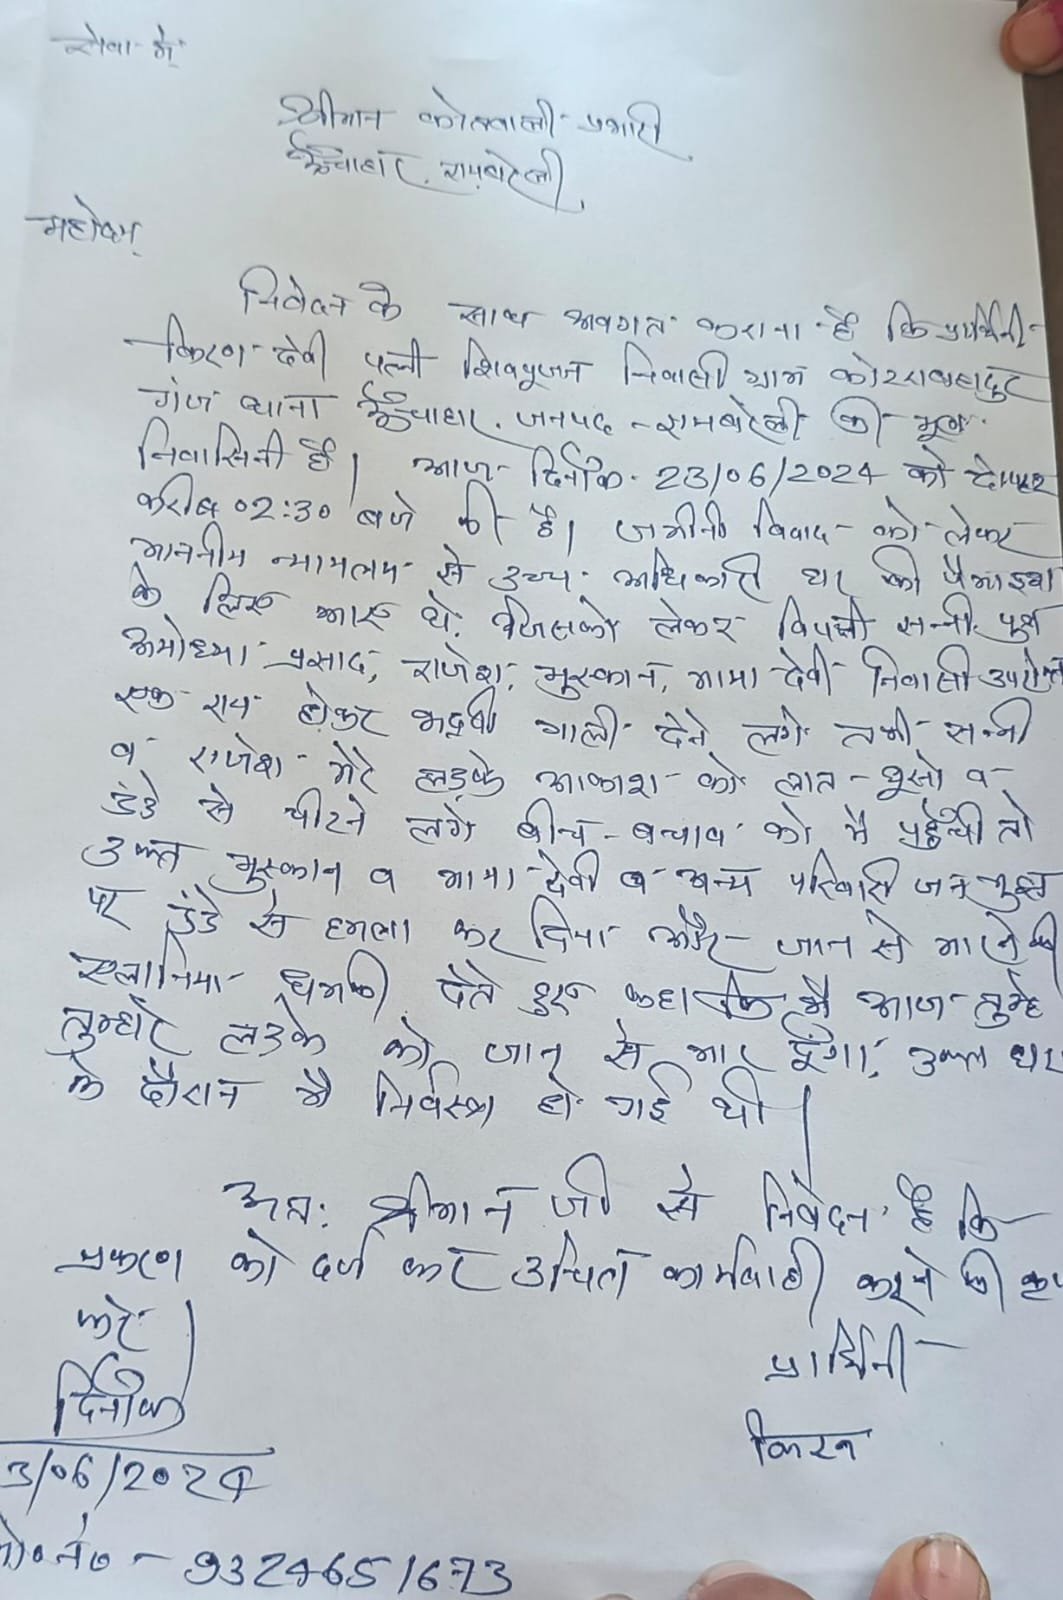 सेवा में
श्रीमान कोतवाली प्रभारी
ऊँचाहार, रायबरेली,
महोदय,
निवेदन के साथ अवगत कराना है कि प्रार्थिनी
किरण देवी पत्नी शिवपूजन निवासी ग्राम कोटराबहादुर
गंज थाना ऊँचाहार, जनपद-रायबरेली की मूल
निवासिनी है। आज दिनांक 23/06/2024 को दोपहर
करीब 02:30 बजे की है। जमीनी विवाद को लेकर
माननीय न्यायालय से उच्च अधिकारी घर की पैमाइश
के लिए आए थे, जिसको लेकर विपक्षी सन्नी पुत्र
अयोध्या प्रसाद, राजेश, मुस्कान, माया देवी निवासी उपरोक्त
एक राय होकर भद्दी गाली देने लगे तभी सन्नी
व राजेश मेरे लड़के आकाश को लात-घूसो व
डंडे से पीटने लगे बीच-बचाव को मै पहुँची तो
उक्त मुस्कान व माया देवी व अन्य परिवारी जन मुझ
पर डंडे से हमला कर दिया और जान से मारने की
एलानिया धमकी देते हुए कहा कि मै आज तुम्हे
तुम्हारे लड़के को जान से मार दूँगा, उक्त
के दौरान मै निर्वस्त्र हो गई थी।
अतः श्रीमान जी से निवेदन है कि
प्रकरण को दर्ज कर उचित कार्यवाही करने की
करे।
दिनांक
3/06/2024
प्रार्थिनी
किरन
मो०नं० - 9324651673